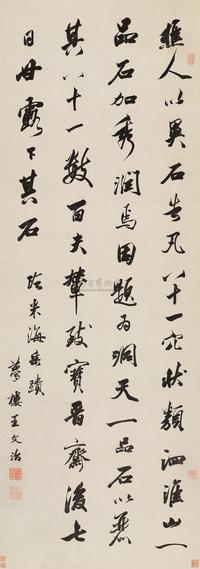 樵人以異石告凡八十一穴狀類泗淮山一
品石加秀潤焉因題為洞天一品石以麗
其八十一數百夫輦致寶晉齋後七
日甘露下其石
臨米海岳蹟
夢樓王文治